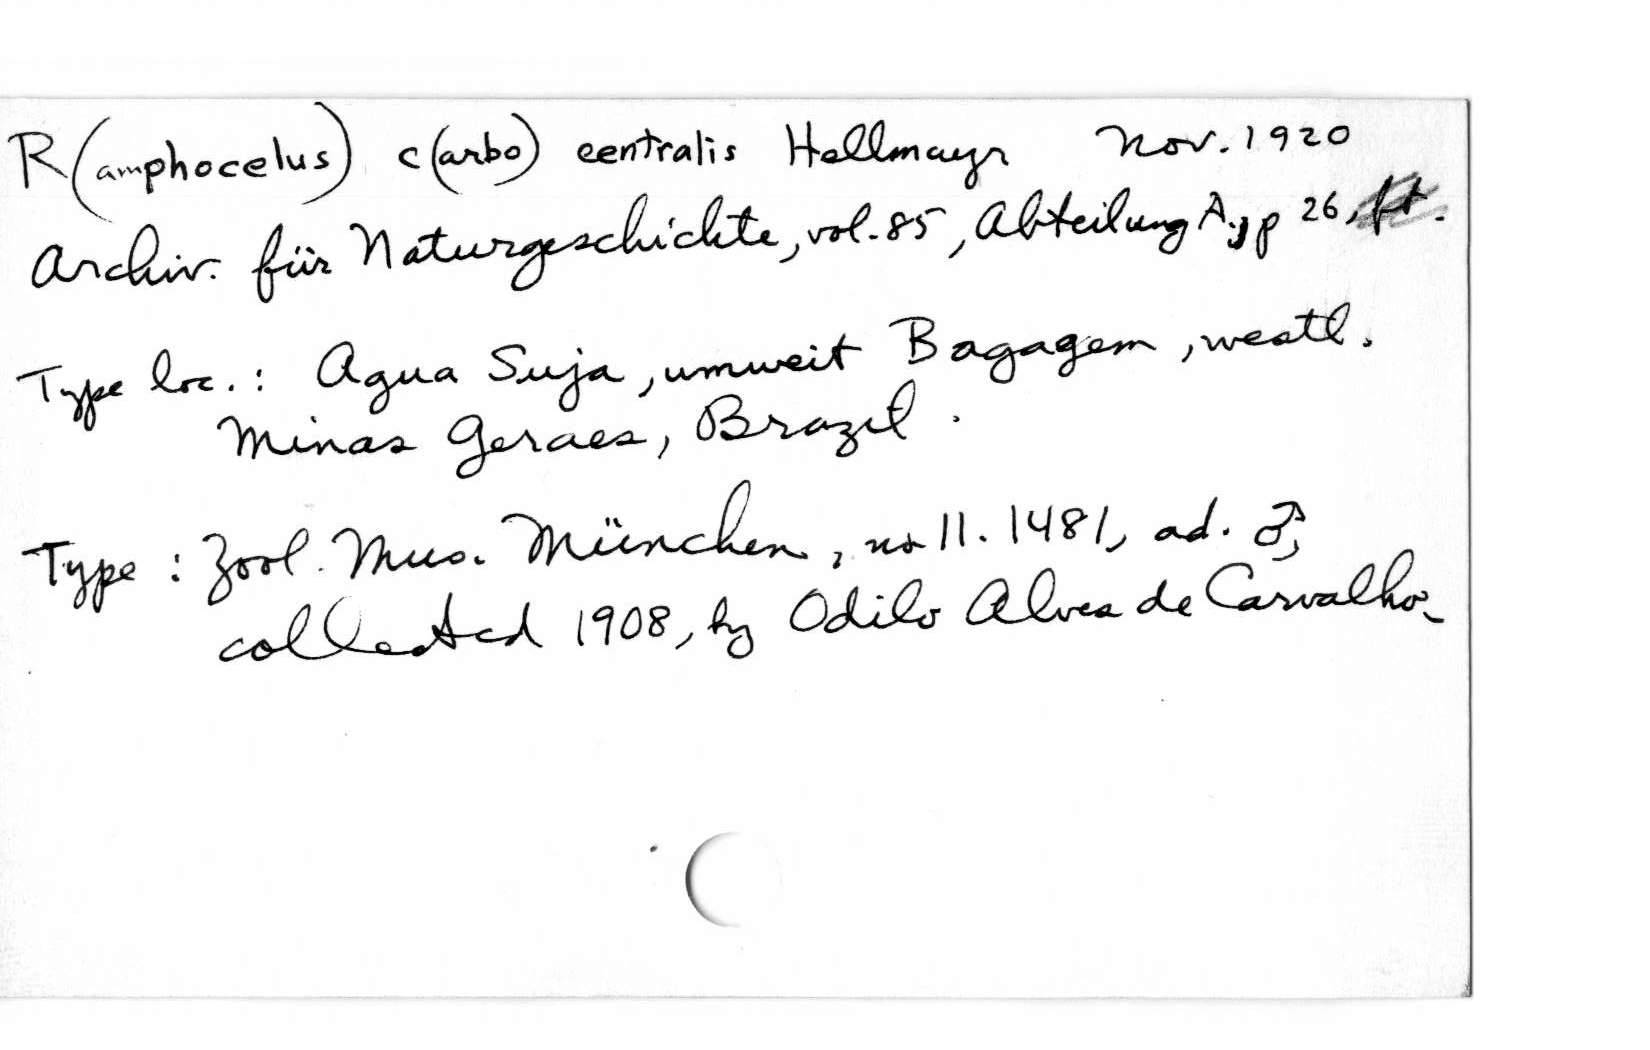 R(amphocelus) c(arbo) centralis Hellmayr Nov. 1920
Archiv. für Naturgeschichte, vol. 85, Abteilung A, p 26,
Type loc.: Agua Suja, umweit Bagagem, westl.
Minas Geraes, Brazil.
Type: Zool. Mus. München, no 11.1481, ad. ♂,
collected 1908, by Odilo Alves de Carvalho.